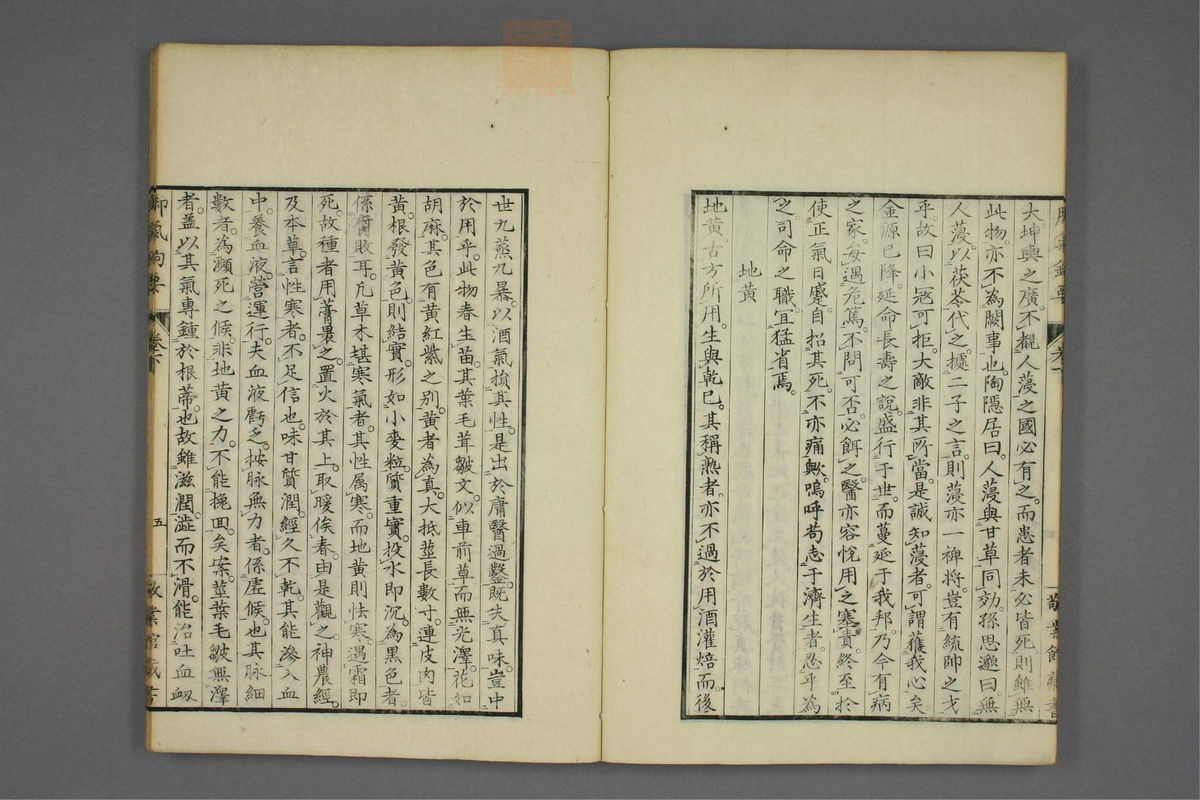 大。坤輿之廣。不觀人蓡之國必有之。而患者未必皆死。則雖無
此物。亦不為闕事也。陶隱居曰。人蓡與甘草同効。孫思邈曰。無
人蓡。以茯苓代之。據二子之言。則蓡亦一裨將。豈有統帥之才
乎。故曰小寇可拒。大敵非其所當。是誠知蓡者。可謂獲我心矣。
金源已降。延命長壽之說。盛行于世。而蔓延于我邦。乃今有病
之家。每遇危篤。不問可否。必餌之。醫亦容悅用之塞責。終至於
使正氣日蹙。自招其死。不亦痛歟。嗚呼苟志于濟生者。忍乎為
之司命之職。宜猛省焉。
地黃
地黃。古方所用。生與乾已。其稱熟者。亦不過於用酒灌焙。而後
世九蒸九暴。以酒氣損其性。是出於庸醫過鑿。既失真味。豈中
於用乎。此物春生苗。其葉毛茸皺文。似車前草而無光澤。花如
胡麻。其色有黃紅紫之別。黃者為真。大抵莖長數寸。連皮肉皆
黃。根發黃色。則結實。形如小麥粒。質重實。投水即沉。為黑色者。
係腐敗耳。凡草木堪寒氣者。其性属寒。而地黃則怯寒。遇霜即
死。故種者用藁裹之。置火於其上。取暖俟春。由是觀之。神農經
及本草。言性寒者。不足信也。味甘質潤。經久不乾。其能滲入血
中。養血液。營運行。夫血液虧乏。按脉無力者。係虛候也。其脉細
數者。為瀕死之候。非地黃之力。不能挽回矣。案。莖葉毛皺無澤
者。蓋以其氣專鍾於根蒂也。故雖滋潤。澁而不滑。能治吐血衂
卷下
五